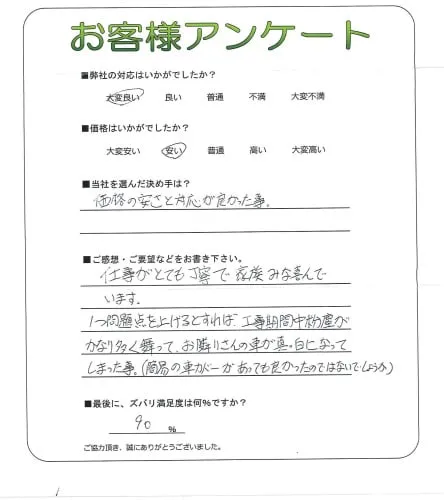 お客様アンケート
■弊社の対応はいかがでしたか？
大変良い 良い 普通 不満 大変不満
■価格はいかがでしたか？
大変安い 安い 普通 高い 大変高い
■当社を選んだ決め手は？
価格の安さと対応が良かった事。
■ご感想・ご要望などをお書き下さい。
仕事がとても丁寧で家族みな喜んで
います。
1つ問題点を上げるとすれば、工事期間中粉塵が
かなり多く舞って、お隣りさんの車が真っ白になって
しまった事。(簡易の車カバーがあっても良かったのではないでしょうか)
■最後に、ズバリ満足度は何%ですか？
90 %
ご協力頂き、誠にありがとうございました。